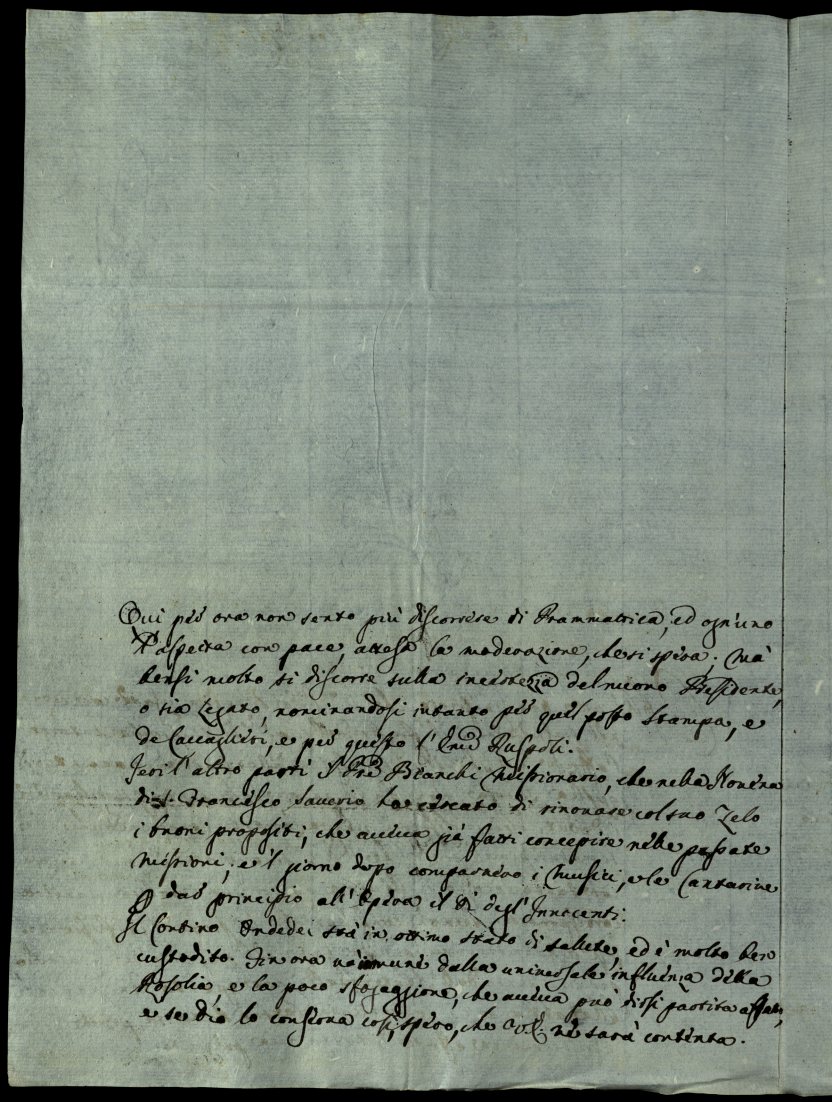 Qui per ora non sento più discorrere di Prammatica, ed ogn'uno
l'aspetta con pace, attesa la moderazione, che si spera; mà
bensi molto si discorre sulla del nuovo Presidente,
o sia Legato, nominandosi intanto per quel posto Stampa, e
de Cavaglieri, e per questo l'Emo Ruspoli.
Jeri l'altro partì il Pre Bianchi Missionario, che nella Novena
di S. Francesco Saverio ha cercato di rinovare col suo Zelo
i buoni propositi, che aveva già fatti concepire nelle passate
missioni; e il giorno dopo comparvero i Musici, e le Cantarine
p dar principio all'Opera il dì degl'Innocenti.
Il Contino Ondedei stà in ottimo stato di salute, ed è molto ben
custodito. Fin ora và immune dalla universale influenza della
Rosolia, e la poca sfogazione, che aveva può dirsi partita affatto,
e se Dio lo conserva così, spero, che ne sarà contenta.